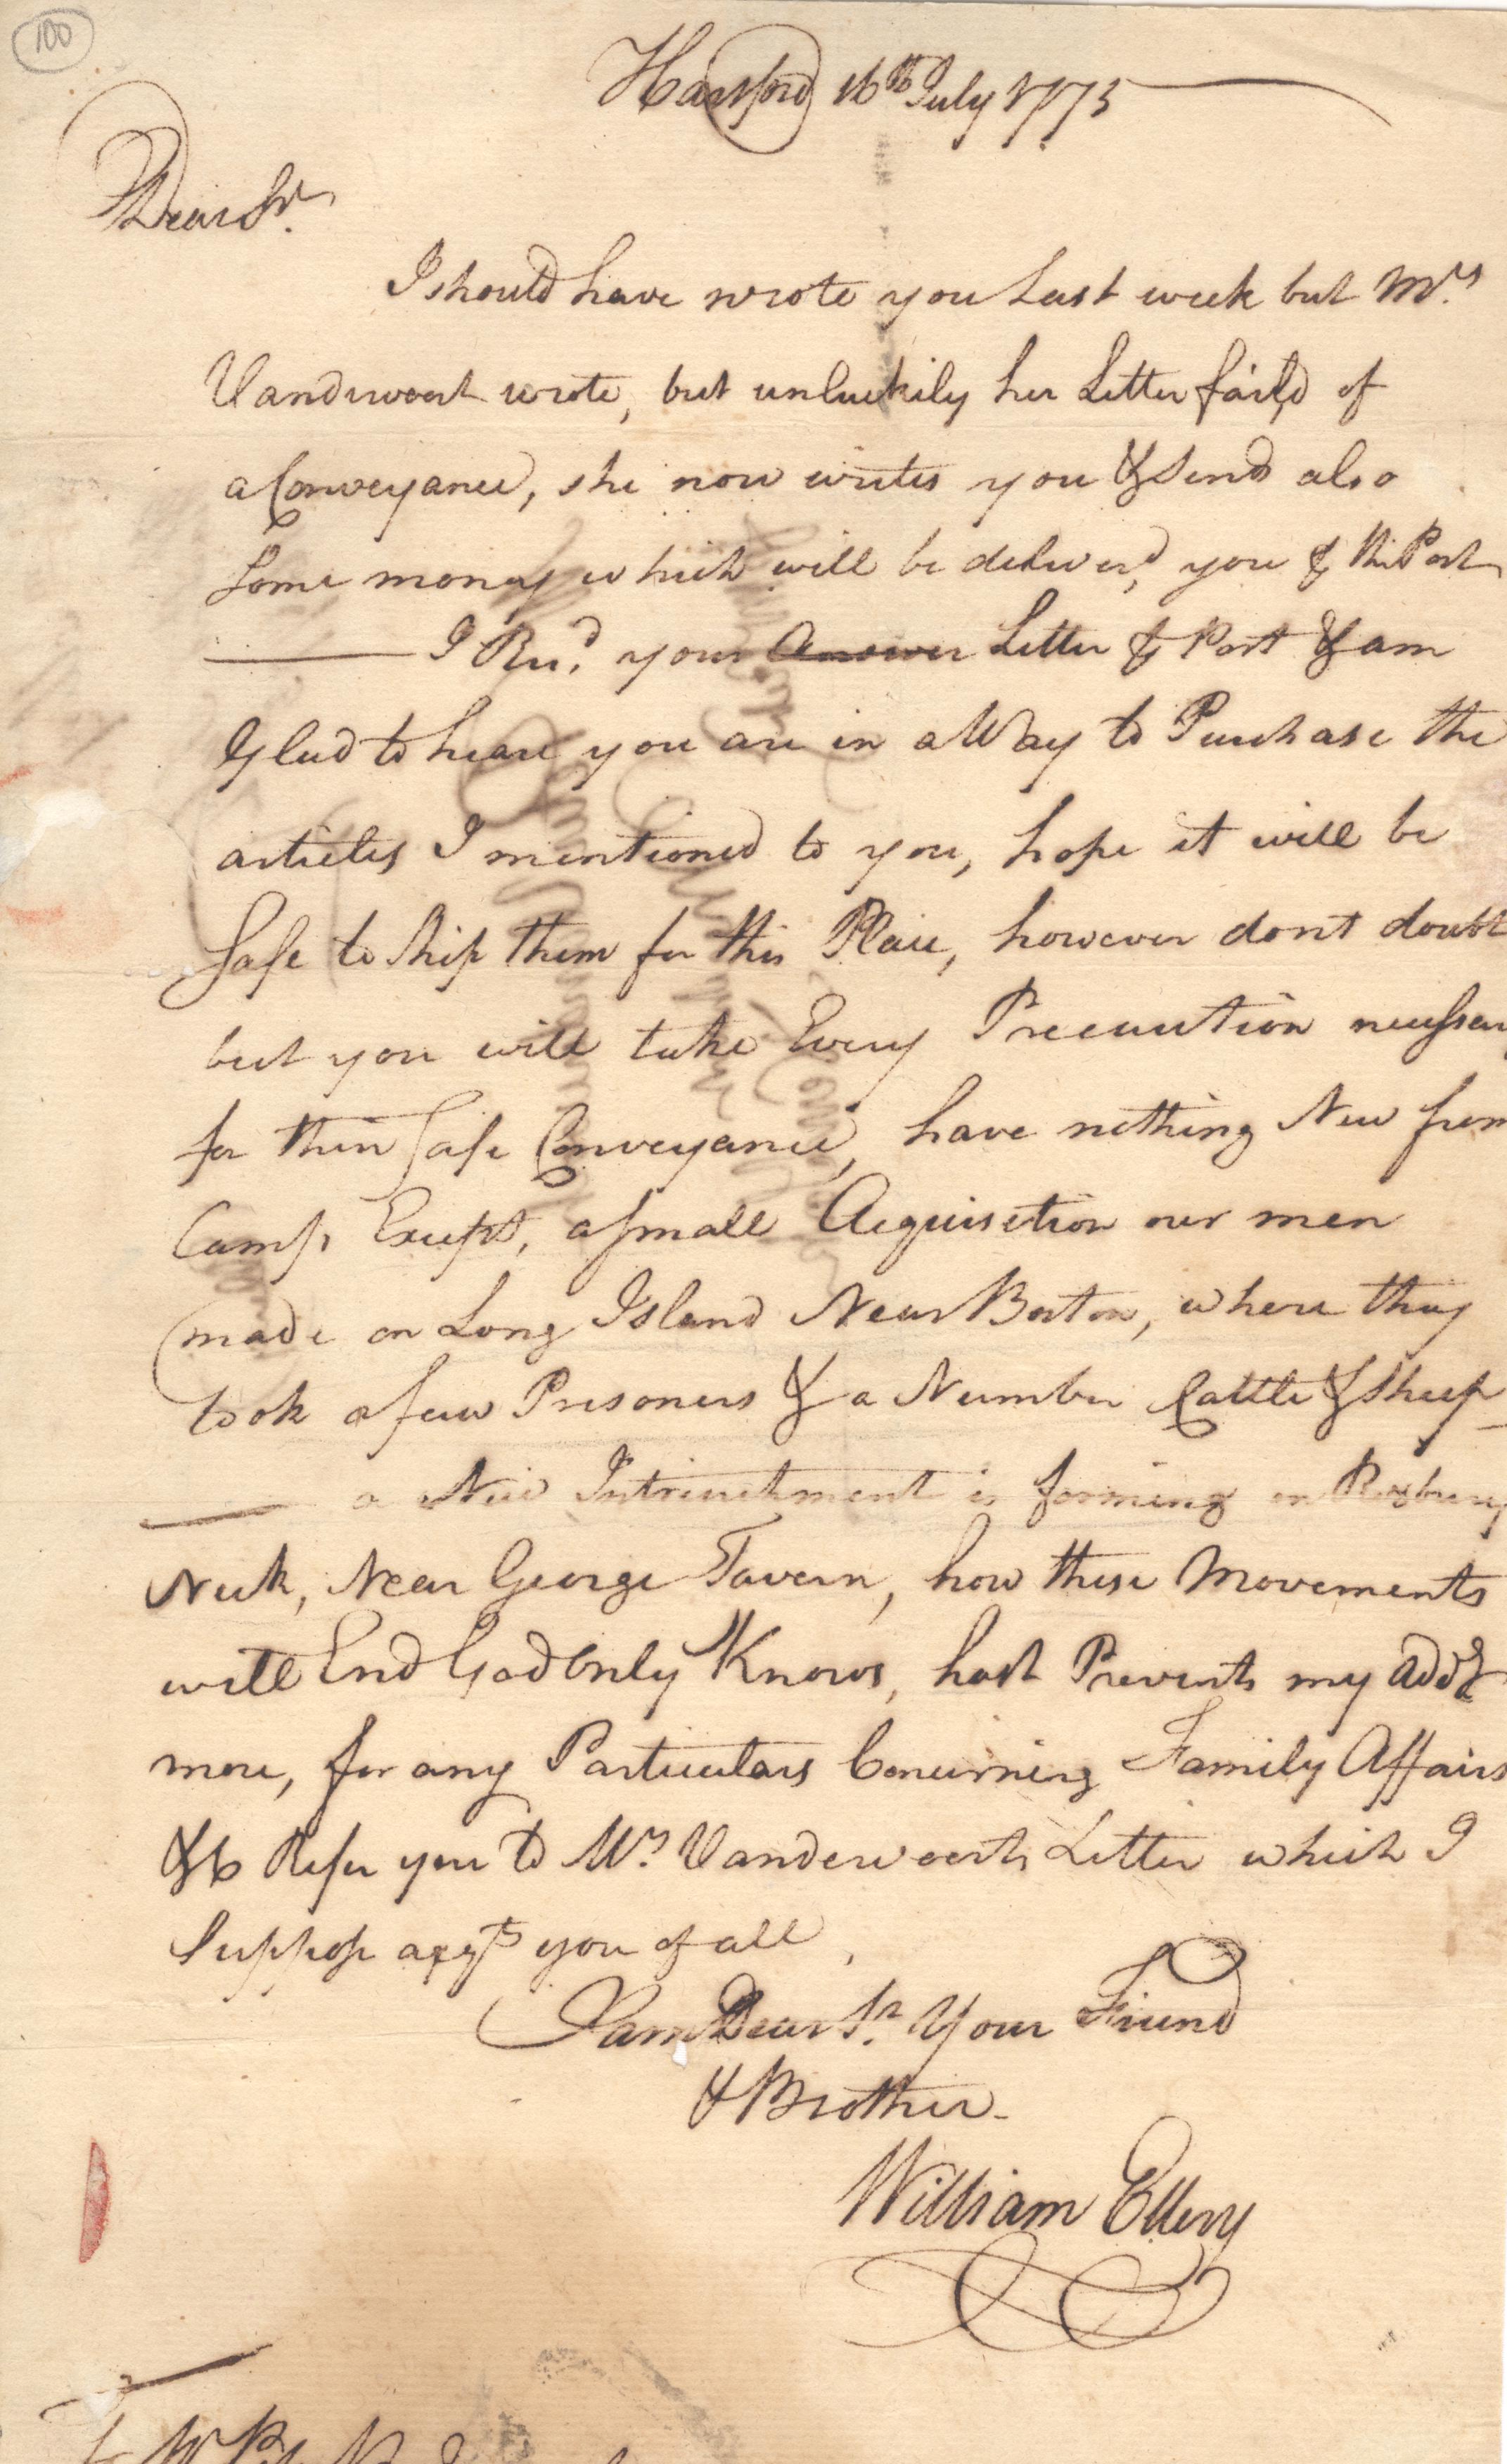 100
Hartford 16th July 1775
Dear Sr.
I should have wrote you Last week but Mrs
Vandervoort wrote, but unluckily her Letter fail'd of
a Conveyance, she now writes you & Sends also
Some money which will be deliver'd you ⅌ this Post
I Recd. your Answer Letter ⅌ Post & am
Glad to hear you are in a Way to Purchase the
articles I mentioned to you, hope it will be
Safe to Ship them for this Place, however dont doubt
but you will take Every Precaution necessary
for their Safe Conveyance, have nothing New from
Camp Except, a small Acquisition our men
made on Long Island Near Boston, where they
took a few Prisoners & a Number Cattle & Sheep
a New Intrenchment is forming on Roxbury
Neck, Near George Tavern, how these Movements
will End God Only Knows, hast Prevents my addg
more, for any Particulars Concerning Family Affairs
&c Refer you to Mrs. Vandervoorts Letter which I
Suppose aqts you of all,
I am Dear Sr. Your Friend
& Brother
William Ellery
To Mr